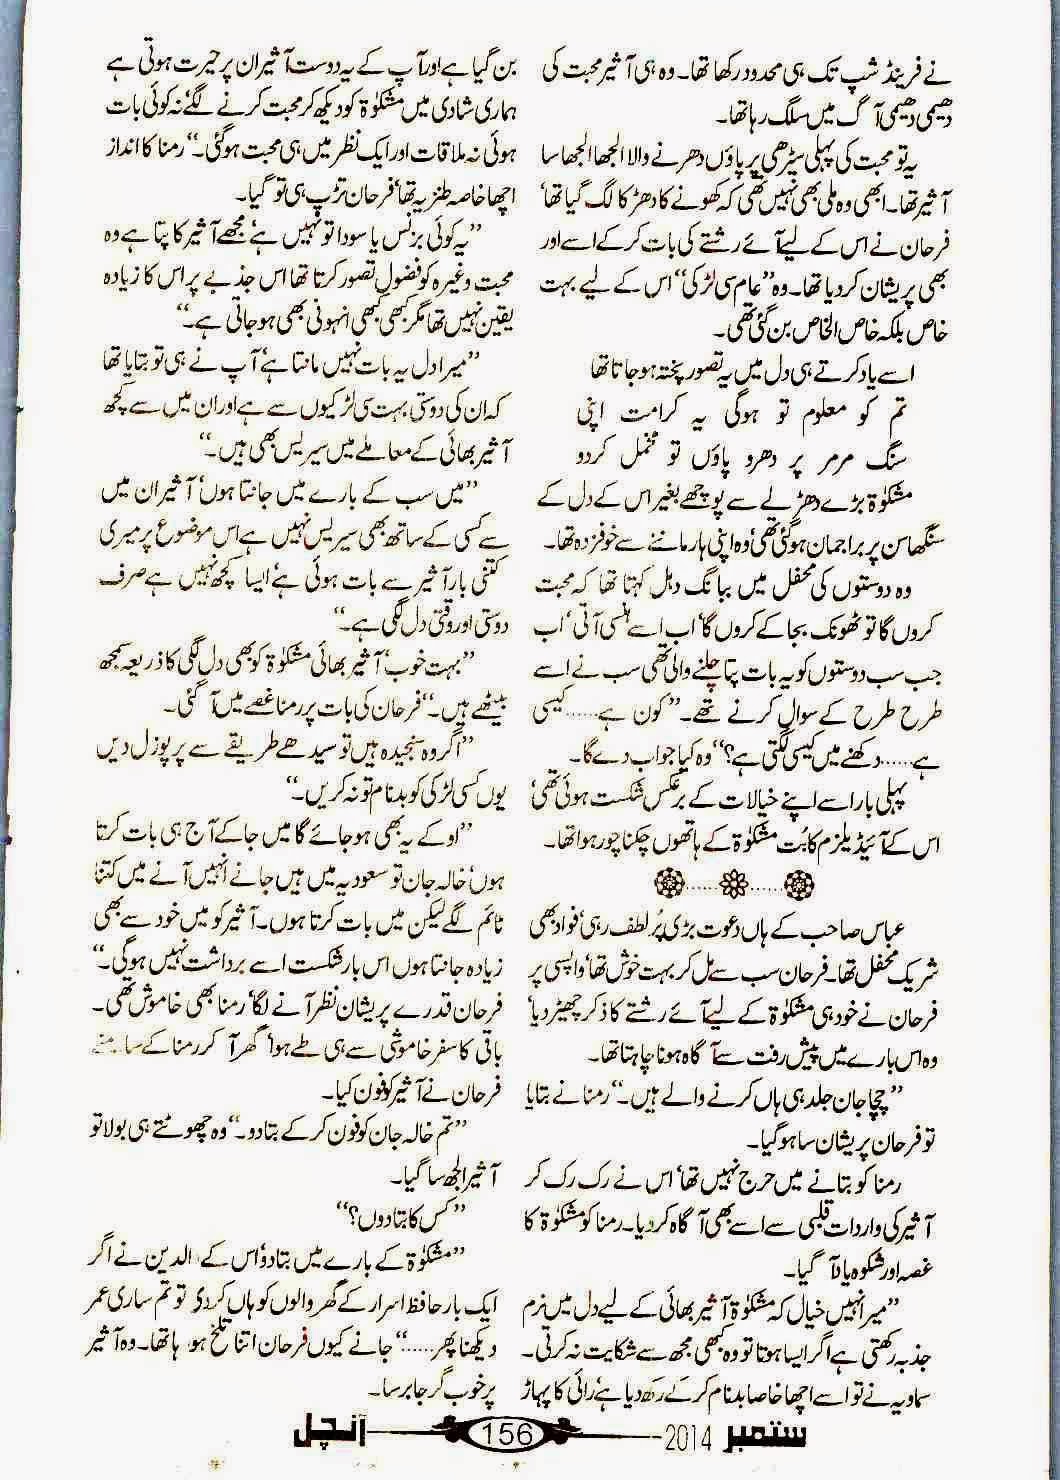 نے فرینڈ شپ تک ہی محدود رکھا تھا۔ وہ ہی آشیر محبت کی
دھیمی دھیمی آگ میں سلگ رہا تھا۔
یہ تو محبت کی پہلی سیڑھی پر پاؤں دھرنے والا الجھا الجھا سا
آشیر تھا۔ ابھی وہ ملی بھی نہیں تھی کہ کھونے کا دھڑکا لگ گیا تھا‘
فرحان نے اس کے لیے آئے رشتے کی بات کرکے اسے اور
بھی پریشان کردیا تھا۔ وہ ”عام سی لڑکی“ اس کے لیے بہت
خاص بلکہ خاص الخاص بن گئی تھی۔
اسے یاد کرتے ہی دل میں یہ تصور پختہ ہوجاتا تھا
تم کو معلوم تو ہوگی یہ کرامت اپنی
سنگ مرمر پر دھرو پاؤں تو مخمل کردو
مشکوٰۃ بڑے دھڑلے سے پوچھے بغیر اس کے دل کے
سنگھاسن پر براجمان ہوگئی تھی‘ وہ اپنی ہار ماننے سے خوفزدہ تھا۔
وہ دوستوں کی محفل میں ببانگ دہل کہتا تھا کہ محبت
کروں گا تو ٹھونک بجا کے کروں گا‘ اب اسے ہنسی آتی‘ اب
جب سب دوستوں کو یہ بات پتا چلنے والی تھی سب نے اسے
طرح طرح کے سوال کرنے تھے۔ ”کون ہے......کیسی
ہے......دکھنے میں کیسی لگتی ہے؟“ وہ کیا جواب دے گا۔
پہلی بار اسے اپنے خیالات کے برعکس شکست ہوئی تھی‘
اس کے آئیڈیلزم کا بُت مشکوٰۃ کے ہاتھوں چکنا چور ہوا تھا۔
عباس صاحب کے ہاں دعوت بڑی پُر لطف رہی‘ فواد بھی
شریک محفل تھا۔ فرحان سب سے مل کر بہت خوش تھا‘ واپسی پر
فرحان نے خود ہی مشکوٰۃ کے لیے آئے رشتے کا ذکر چھیڑ دیا‘
وہ اس بارے میں پیش رفت سے آگاہ ہونا چاہتا تھا۔
”چچا جان جلد ہی ہاں کرنے والے ہیں۔“ رمنا نے بتایا
تو فرحان پریشان سا ہوگیا۔
رمنا کو بتانے میں حرج نہیں تھا‘ اس نے رک رک کر
آشیر کی واردات قلبی سے اسے بھی آگاہ کردیا۔ رمنا کو مشکوٰۃ کا
غصہ اور شکوہ یاد آگیا۔
”میرا نہیں خیال کہ مشکوٰۃ آشیر بھائی کے لیے دل میں نرم
جذبہ رکھتی ہے اگر ایسا ہوتا تو وہ کبھی مجھ سے شکایت نہ کرتی۔
سماویہ نے تو اسے اچھا خاصا بدنام کرکے رکھ دیا ہے‘ رائی کا پہاڑ
بن گیا ہے اور آپ کے یہ دوست آشیر ان پر حیرت ہوتی ہے
ہماری شادی میں مشکوٰۃ کو دیکھ کر محبت کرنے لگے‘ نہ کوئی بات
ہوئی نہ ملاقات اور ایک نظر میں ہی محبت ہوگئی۔“ رمنا کا انداز
اچھا خاصہ طنزیہ تھا‘ فرحان تڑپ ہی تو گیا۔
”یہ کوئی بزنس یا سودا تو نہیں ہے‘ مجھے آشیر کا پتا ہے وہ
محبت وغیرہ کو فضول تصور کرتا تھا اس جذبے پر اس کا زیادہ
یقین نہیں تھا مگر کبھی کبھی انہونی بھی ہوجاتی ہے۔“
”میرا دل یہ بات نہیں مانتا ہے‘ آپ نے ہی تو بتایا تھا
کہ ان کی دوستی بہت سی لڑکیوں سے ہے اور ان میں سے کچھ
آشیر بھائی کے معاملے میں سیریس بھی ہیں۔“
”میں سب کے بارے میں جانتا ہوں‘ آشیر ان میں
سے کسی کے ساتھ بھی سیریس نہیں ہے اس موضوع پر میری
کتنی بار آشیر سے بات ہوئی ہے‘ ایسا کچھ نہیں ہے صرف
دوستی اور وقتی دل لگی ہے۔“
”بہت خوب‘ آشیر بھائی مشکوٰۃ کو بھی دل لگی کا ذریعہ سمجھ
بیٹھے ہیں۔“ فرحان کی بات پر رمنا غصے میں آگئی۔
”اگر وہ سنجیدہ ہیں تو سیدھے طریقے سے پرپوزل دیں
یوں کسی لڑکی کو بدنام تو نہ کریں۔“
”اوکے یہ بھی ہوجائے گا میں جا کے آج ہی بات کرتا
ہوں‘ خالہ جان تو سعودیہ میں ہیں جانے انہیں آنے میں کتنا
ٹائم لگے لیکن میں بات کرتا ہوں۔ آشیر کو میں خود سے بھی
زیادہ جانتا ہوں اس بار شکست اسے برداشت نہیں ہوگی۔“
فرحان قدرے پریشان نظر آنے لگا‘ رمنا بھی خاموش تھی۔
باقی کا سفر خاموشی سے ہی طے ہوا‘ گھر آ کر رمنا کے سامنے
فرحان نے آشیر کو فون کیا۔
”تم خالہ جان کو فون کرکے بتادو۔“ وہ چھوٹتے ہی بولا تو
آشیر الجھ سا گیا۔
”کس کا بتادوں؟“
”مشکوٰۃ کے بارے میں بتادو‘ اس کے الدین نے اگر
ایک بار حافظ اسرار کے گھر والوں کو ہاں کردی تو تم ساری عمر
دیکھنا پھر......“ جانے کیوں فرحان اتنا تلخ ہو ہا تھا۔ وہ آشیر
پر خوب گرجا برسا۔
ستمبر 2014 156 آنچل